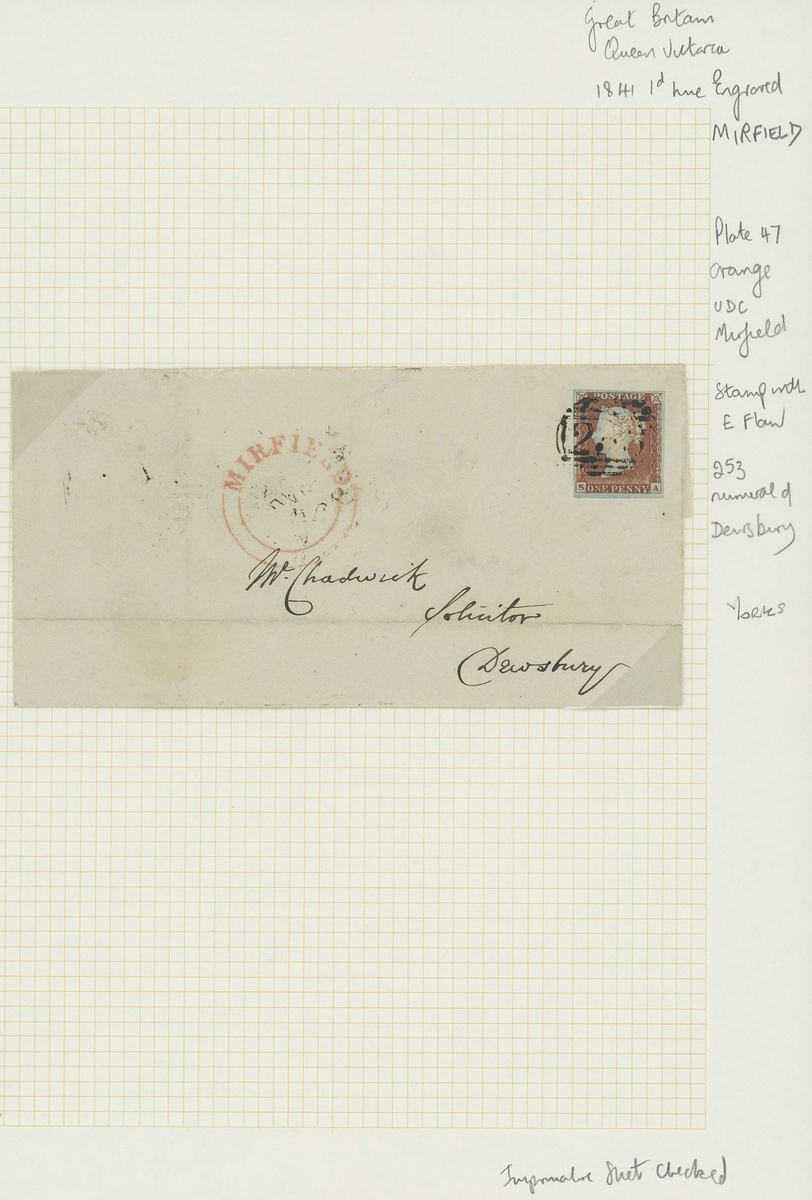 Great Britain
Queen Victoria
1841 1d line Engraved
MIRFIELD
Plate 47
Orange
UDC
Mirfield
Stamp with
E Flaw
253
numeral of
Dewsbury
Yorks
POSTAGE
S ONE PENNY A
MIRFIELD
Mr. Chadwick
Solicitor
Dewsbury
Imprimatur Sheet Checked